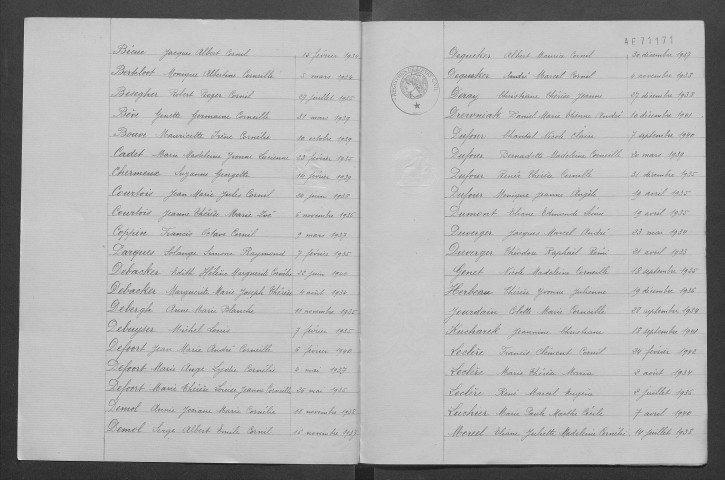 Bécue Jacques Albert Cornil 15 février 1934
Berteloot Monique Albertine Corneille 5 mars 1934
Beseghes Robert Roger Cornil 27 juillet 1935
Bève Ginette Germaine Corneille 31 mars 1939
Bouve Mauricette Irène Cornélie 10 octobre 1939
Cadet Marie Madeleine Jeanne Lucienne 23 février 1935
Chermeux Suzanne Georgette 14 février 1939
Courtois Jean Marie Jules Cornil 20 juin 1937
Courtois Jeanne Thérèse Marie 6 novembre 1935
Coppin Francis Octave Cornil 9 mars 1937
Darques Solange Simone Raymond 7 février 1935
Debacker Edith Hélène Marguerite Cornélie 22 juin 1940
Debacker Marguerite Marie Joseph Thérèse 4 août 1934
Debergh Anne Marie Blanche 11 novembre 1935
Debuyser Michel Louis 7 février 1935
Defoort Jean Marie André Corneille 5 février 1940
Defoort Marie Ange Lydie Cornélie 6 mai 1937
Defoort Marie Thérèse Louise Jeanne Cornélie 26 mai 1935
Demol Annie Johanna Marie Cornélie 11 novembre 1938
Demol Serge Albert Emile Cornil 15 novembre 1937
AE71171
Dequeker Albert Maurice Cornil 30 décembre 1937
Dequeker André Marcel Cornil 6 novembre 1938
Deray Christiane Thérèse Jeanne 27 décembre 1933
Drewniak Daniel Marie Etienne André 10 décembre 1941
Dufour Chantal Nicole Claire 7 septembre 1940
Dufour Bernadette Madeleine Corneille 20 mars 1939
Dufour Renée Thérèse Corneille 31 décembre 1935
Dufour Monique Jeanne Angèle 19 avril 1935
Dumont Eliane Edmonde 19 avril 1935
Duverger Jacques Marcel André 23 mai 1934
Duverger Théodore Raphaël Rémi 21 avril 1933
Genet Nicole Madeleine Corneille 18 septembre 1935
Herbeau Thérèse Yvonne Julienne 19 décembre 1935
Jourdain Colette Marie Corneille 28 septembre 1934
Kucharek Jeannine Christiane 18 septembre 1940
Leclère Francis Clément Cornil 24 février 1940
Leclère Marie Thérèse Maria 3 août 1934
Leclère René Marcel Eugène 2 juillet 1935
Marie Paule Marthe Cécile 7 avril 1940
Morcel Eliane Juliette Madeleine Cornélie 14 juillet 1938